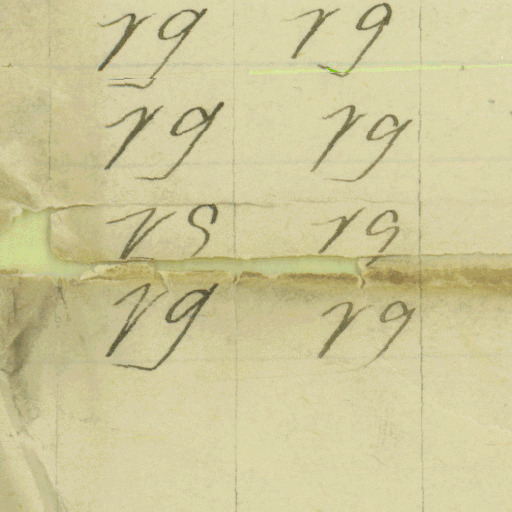 rg rg
rg rg
rg rg
rg rg